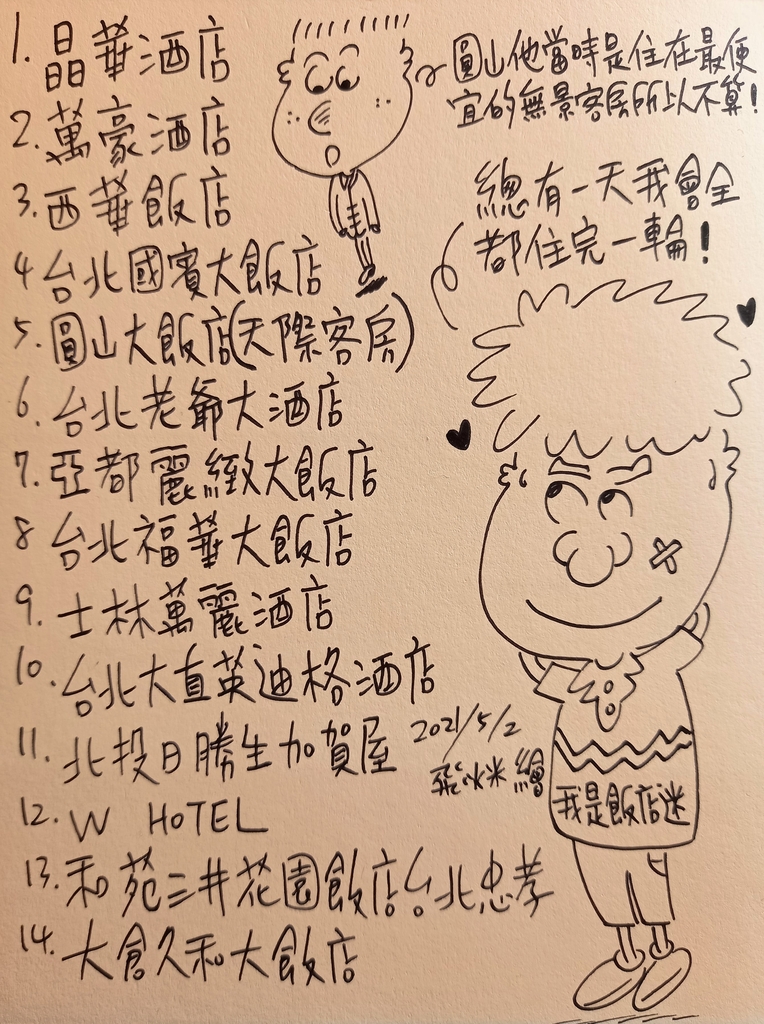 1. 晶華酒店
2. 萬豪酒店
3. 西華飯店
4 台北國賓大飯店
5. 圓山大飯店(天際客房)
6. 台北老爺大酒店
7. 亞都麗緻大飯店
8 台北福華大飯店
9. 士林萬麗酒店
10. 台北大直英迪格酒店
11. 北投日勝生加賀屋
12. W HOTEL
13. 和苑三井花園飯店台北忠孝
14. 大倉久和大飯店
圓山他當時是住在最便
宜的無景客房所以不算!
總有一天我會全
都住完一輪!
2021/5/2
飛咪繪
我是飯店迷